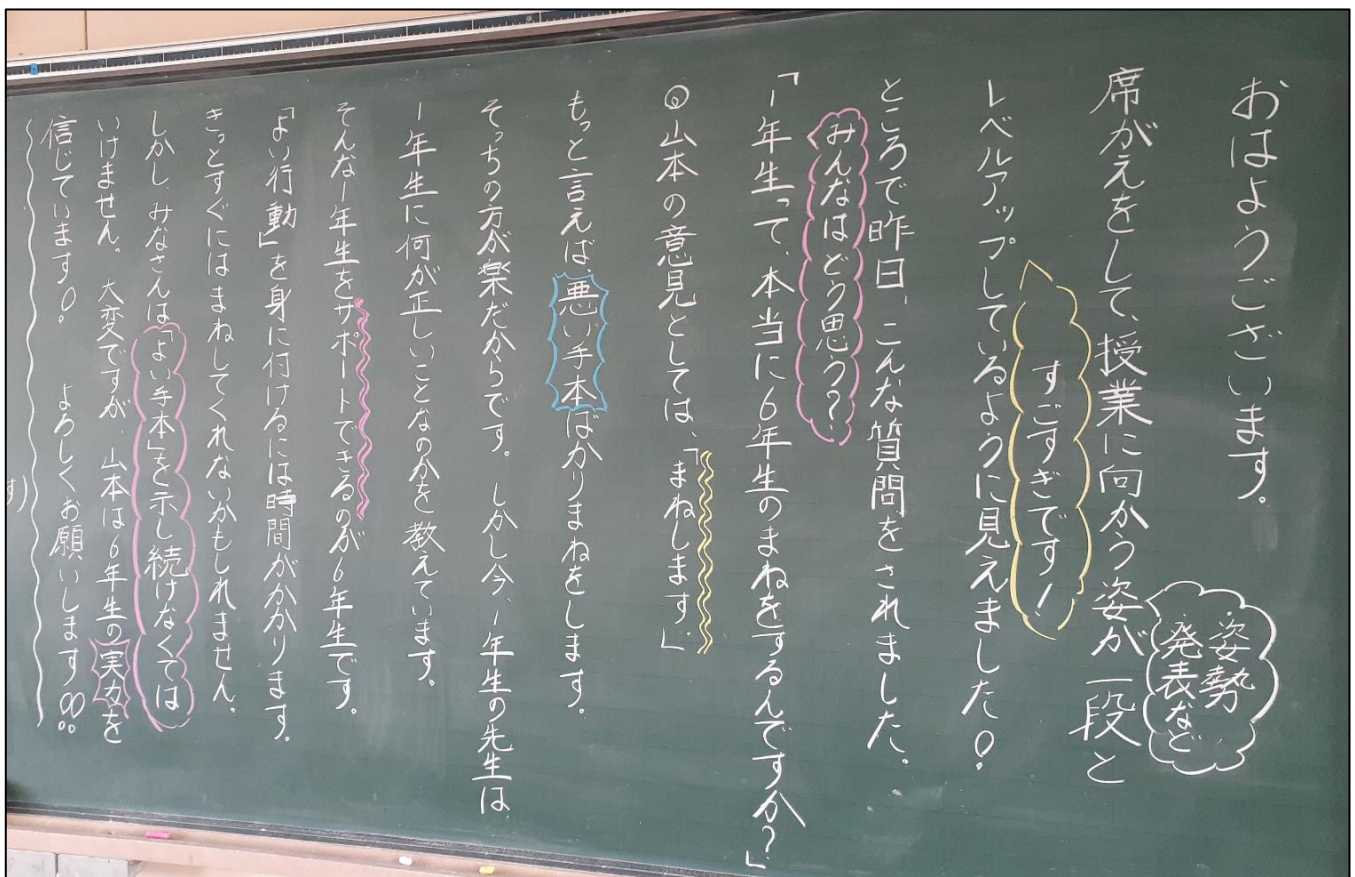 おはようございます。
姿勢
発表など
席がえをして、授業に向かう姿が一段と
すごすぎです!
レベルアップしているように見えました!
ところで昨日、こんな質問をされました。
みんなはどう思う?
「1年生って、本当に6年生のまねをするんですか?」
◎山本の意見としては、「まねします。」
もっと言えば、悪い手本ばかりまねをします。
そっちの方が楽だからです。しかし今、1年生の先生は、
1年生に何が正しいことなのかを教えています。
そんな1年生をサポートできるのが6年生です。
「よい行動」を身に付けるには時間がかかります。
きっとすぐにはまねしてくれないかもしれません。
しかし、みなさんは「よい手本」を示し続けなくては、
いけません。大変ですが、山本は6年生の実力を
信じています!よろしくお願いします!!
す)